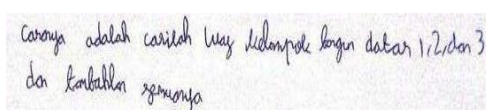 Caranya adalah carilah luas kelompok bangun datar 1, 2, dan 3
dan tambahkan semuanya